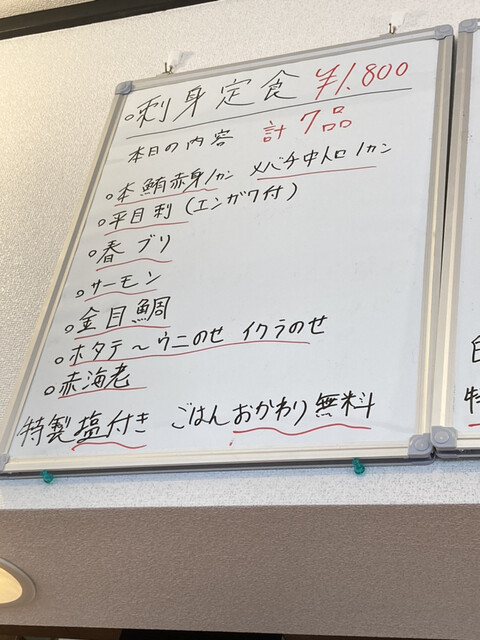 ○刺身定食 ¥1.800
本日の内容 計7品
○本鮪赤身1カン メバチ中トロ1カン
○平目刺(エンガワ付)
○春ブリ
○サーモン
○金目鯛
○ホタテ〜ウニのせ イクラのせ
○赤海老
特製塩付き ごはんおかわり無料